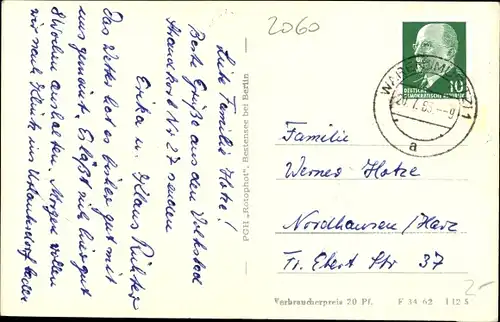 2060
Liebe Familie Hotze!
Beste Grüße aus dem
Strandkorb Nr. 27 senden
Erika u. Klaus Richter
Das Wetter hat es bisher gut mit
uns gemeint. Es läßt sich hier gut
3 Wochen aushalten. Morgen wollen
wir nach
PGH "Rotophot", Bestensee bei Berlin
DEUTSCHE
DEMOKRATISCHE REPUBLIK
10
WAREN (MÜRITZ) 1
a
Familie
Werner Hotze
Nordhausen/Harz
Fr. Ebert Str 37
Verbraucherpreis 20 Pf. F 34 62 I 12 5
2-